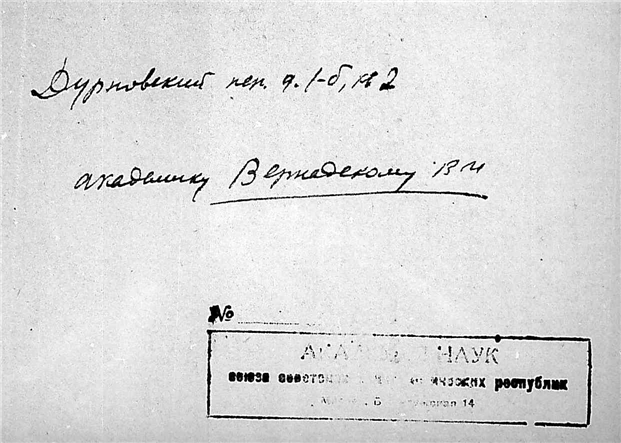 Дурновский пер. д. 1-б, кв 2
академику Вернадскому В И
№
АКАДЕМИЯ НАУК
союза советских социалистических республик
14